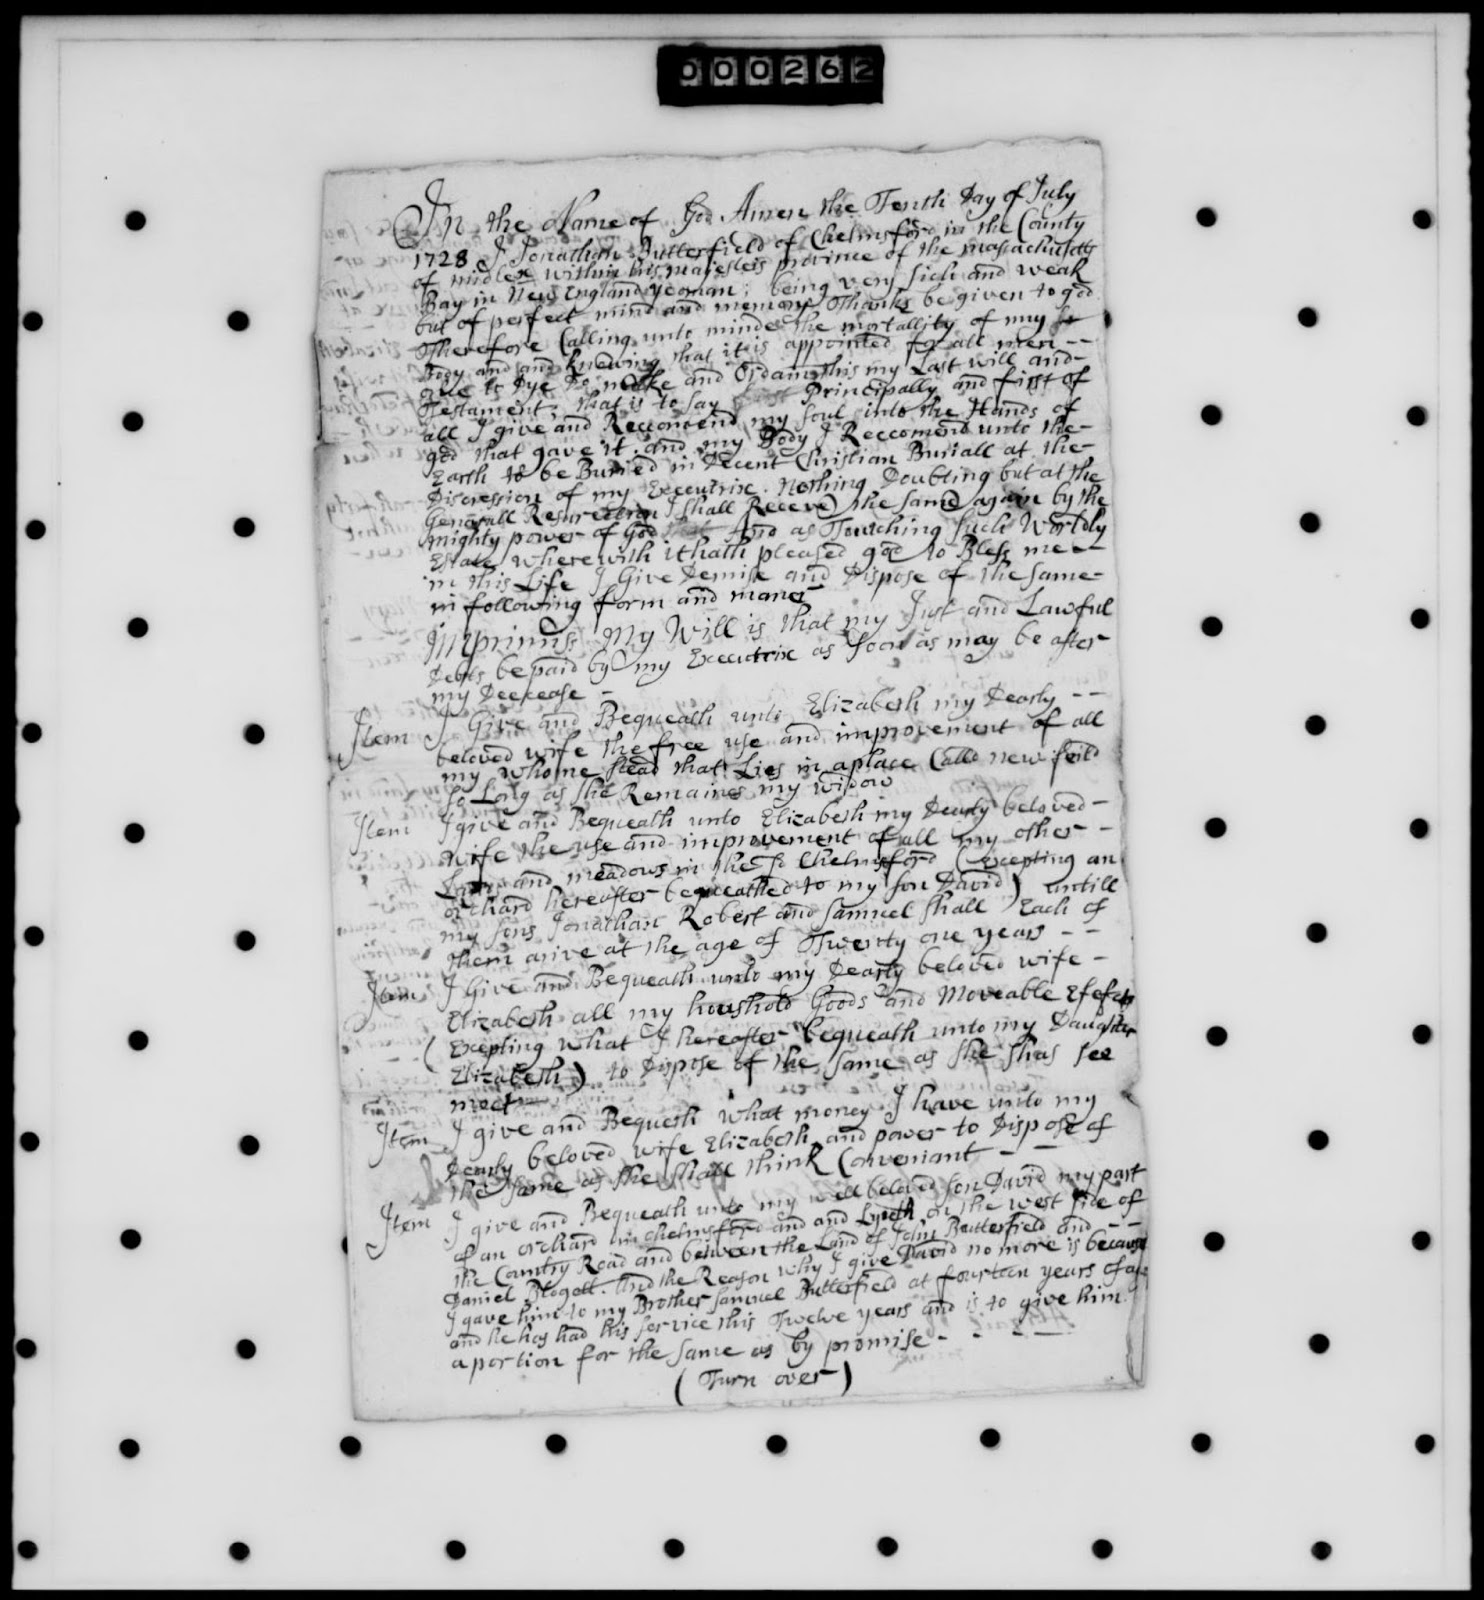 000262
In the Name of God Amen the Tenth Day of July
1728 I Jonathan Butterfield of Chelmsford in the County
of midlex within his majesteis province of the massachusetts
Bay in New England yeoman; being very sick and weak
but of perfect mind and memory Thanks be given to god
Therefore Calling unto minde the mortallity of my
Body and and knowing that it is appointed for all men --
once to Dye Do make and Ordain this my Last will and-
Testament; that is to say Principally and first of
all I give and Reccomend my soul into the Hands of
god that gave it. and my Body I Reccomend unto the-
Earth to be Buried in Decent Christian Buriall at the-
Discression of my Executrix. Nothing Doubting but at the
Generall Resurection I shall Receve the same again by the
mighty power of God And as Touching such Worldly
Estate wherewith it hath pleased god to Bless me --
in this Life I Give Demise and Dispose of the same-
in following form and maner
Imprimiss My Will is that my Just and Lawful
Debts be paid by my Executrix as soon as may be after
my Deecease -
Item I Give and Bequeath unto Elizabeth my Dearly --
beloved wife the free use and improvement of all
my whome stead that Lies in a place Called new feild
so Long as she Remaines my widow
Item I give and Bequeath unto Elizabeth my Dearly beloved-
wife the use and improvement of all my other -
Lands and meadows in the sd Chelmsford (excepting an
orchard hereafter bequeathed to my son David) untill
my sons Jonathan Robert and Samuel shall Each of
them arive at the age of Twenty one years --
Item I Give and Bequeath unto my Dearly beloved wife -
Elizabeth all my houshold Goods and Moveable Efefcts
(Excepting what I hereafter bequeath unto my Daughter
Elizabeth) to Dispose of the same as she shas see
meet
Item I give and Bequeth what money I have unto my
Dearly beloved wife Elizabeth and power to Dispose of
the same as she shall think Conveniant - -
Item I give and Bequeath unto my well beloved son David my part
of an orchard in chelmsford and and Lyeth on the west side of
the Country Road and between the Land of John Butterfield and --
Daniel Blogett. And the Reason why I give David no more is because
I gave him to my Brother Samuel Butterfield at fourteen years of age
and he has had his service this Twelve years and is to give him
a portion for the same as by promise - - - -
(Turn over)